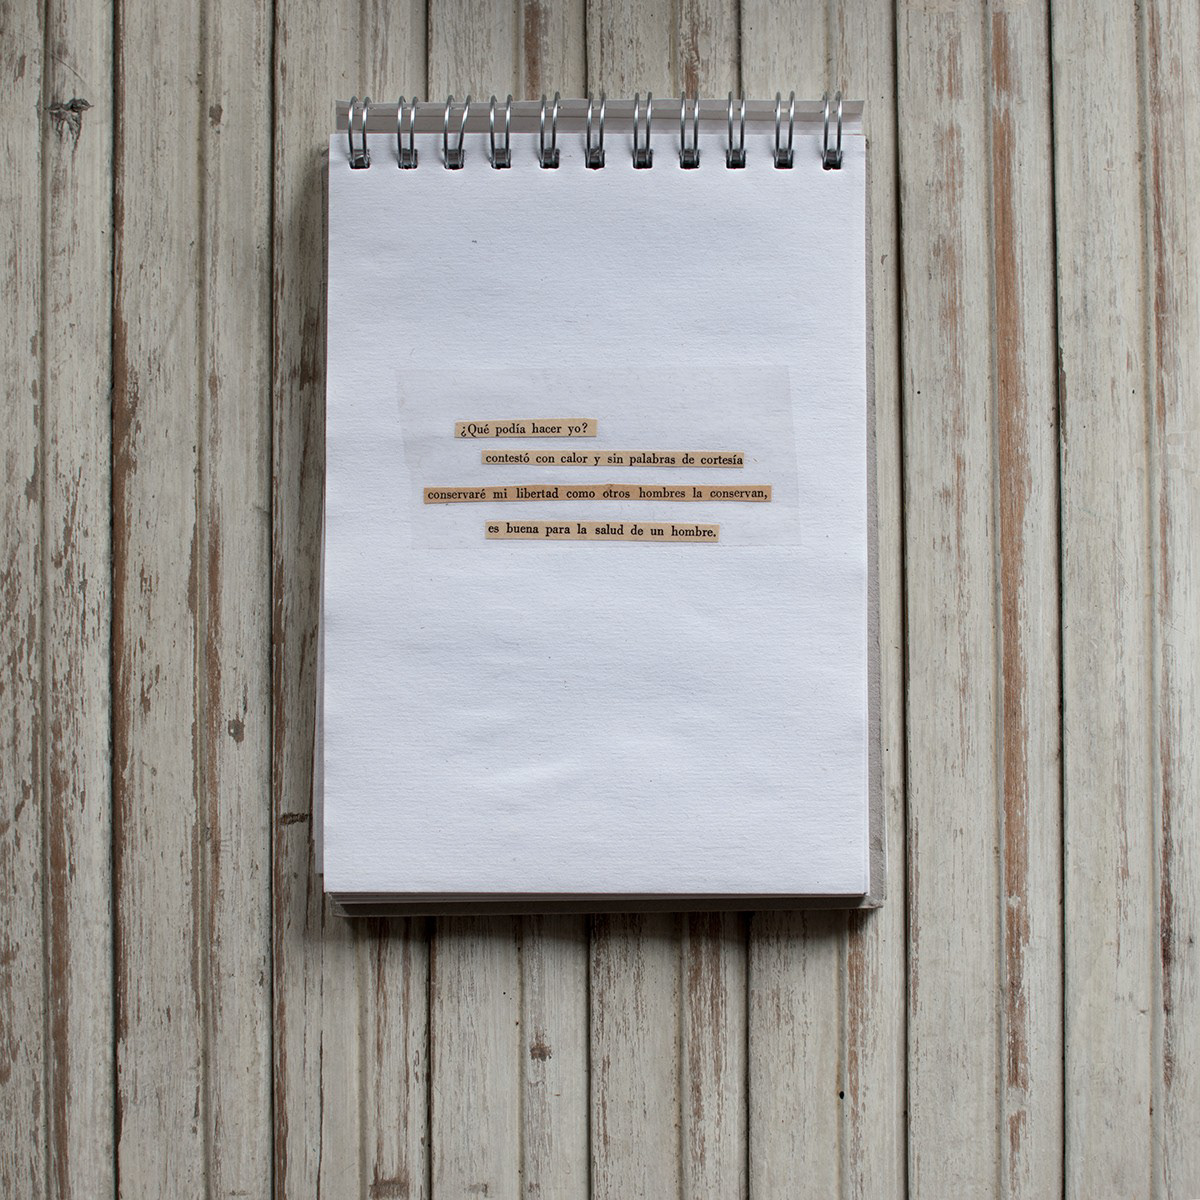 ¿Qué podía hacer yo?
contestó con calor y sin palabras de cortesía
conservaré mi libertad como otros hombres la conservan,
es buena para la salud de un hombre.